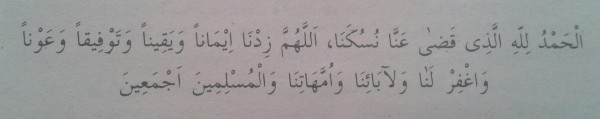 الْحَمْدُ لِلّٰهِ الَّذِى قَضٰى عَنَّا نُسُكَنَا، اَللّٰهُمَّ زِدْنَا اِيْمَاناً وَيَقِيناً وَتَوْفِيقاً وَعَوْناً
وَاغْفِرْ لَنَا وَلاٰبَائِنَا وَاُمَّهَاتِنَا وَالْمُسْلِمِينَ اَجْمَعِينَ